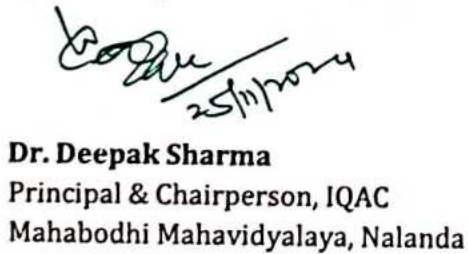 25/11/2024
Dr. Deepak Sharma
Principal & Chairperson, IQAC
Mahabodhi Mahavidyalaya, Nalanda